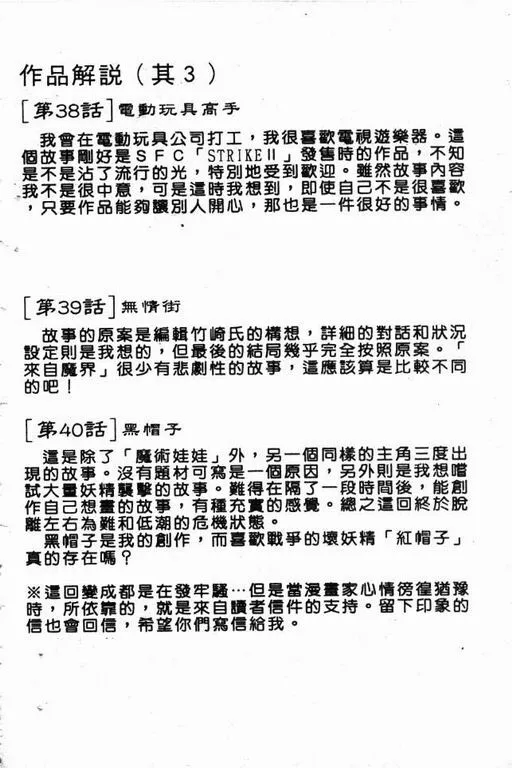 作品解說（其３）
［第38話］電動玩具高手
我曾在電動玩具公司打工，我很喜歡電視遊樂器。這
個故事剛好是ＳＦＣ「STRIKEⅡ」發售時的作品，不知
是不是沾了流行的光，特別地受到歡迎。雖然故事內容
我不是很中意，可是這時我想到，即使自己不是很喜歡
，只要作品能夠讓別人開心，那也是一件很好的事情。
［第39話］無情街
故事的原案是編輯竹崎氏的構想，詳細的對話和狀況
設定則是我想的，但最後的結局幾乎完全按照原案。「
來自魔界」很少有悲劇性的故事，這應該算是比較不同
的吧！
［第40話］黑帽子
這是除了「魔術娃娃」外，另一個同樣的主角三度出
現的故事。沒有題材可寫是一個原因，另外則是我想嚐
試大量妖精襲擊的故事。難得在隔了一段時間後，能創
作自己想畫的故事，有種充實的感覺。總之這回終於脫
離左右為難和低潮的危機狀態。
黑帽子是我的創作，而喜歡戰爭的壞妖精「紅帽子」
真的存在嗎？
※這回變成都是在發牢騷…但是當漫畫家心情徬徨猶豫
時，所依靠的，就是來自讀者信件的支持。留下印象的
信也會回信，希望你們寫信給我。